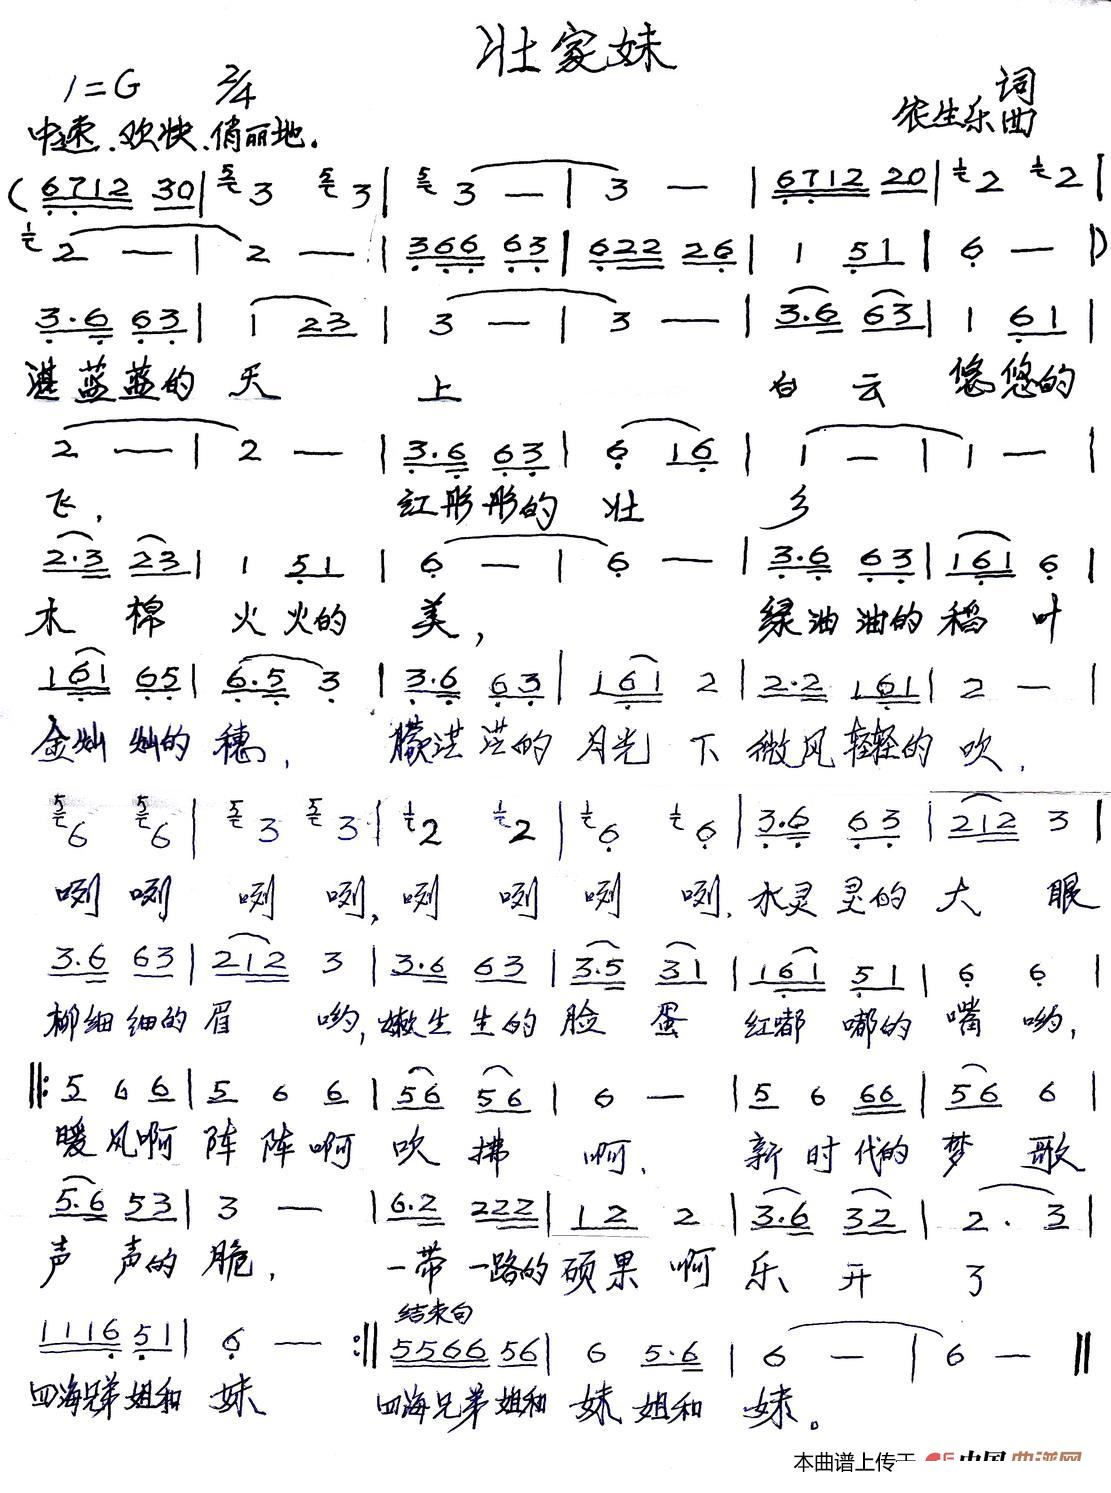 壮家妹
1=G 2/4 词
中速、欢快、俏丽地。 侬生乐 曲
(6712 30 | 5 3 5 3 | 5 3 — | 3 — | 6712 20 | 1 2 1 2 |
1 2 — | 2 — | 366 63 | 622 26 | 1 51 | 6 — |)
3·6 63 | 1 23 | 3 — | 3 — | 3·6 63 | 1 61 |
湛蓝蓝的 天 上 白 云 悠悠的
2 — | 2 — | 3·6 63 | 6 16 | 1 — | 1 — |
飞, 红彤彤的 壮 乡
2·3 23 | 1 51 | 6 — | 6 — | 3·6 63 | 161 6 |
木 棉 火火的 美, 绿油油的 稻 叶
161 65 | 6·5 3 | 3·6 63 | 161 2 | 2·2 161 | 2 — |
金灿灿的 穗, 朦洪洪的 月光 下 微风轻轻的 吹,
5 6 5 6 | 5 3 5 3 | 1 2 1 2 | 1 6 1 6 | 3·6 63 | 212 3 |
咧 咧 咧 咧, 咧 咧 咧 咧, 水灵灵的 大 眼
3·6 63 | 212 3 | 3·6 63 | 3·5 31 | 161 51 | 6 6 |
柳细细的 眉 哟, 嫩生生的 脸 蛋 红嘟嘟的 嘴 哟,
‖: 5 6 6 | 5 6 6 | 56 56 | 6 — | 5 6 66 | 56 6 |
暖风啊 阵阵啊 吹 拂 啊, 新时代的 梦 歌
5·6 53 | 3 — | 6·2 222 | 12 2 | 3·6 32 | 2· 3 |
声 声的 脆, 一带一路的 硕果 啊 乐 开 了
结束句
1116 51 | 6 — :‖ 5566 56 | 6 5·6 | 6 — | 6 — ‖
四海兄弟姐和 妹 四海兄弟姐和 妹 姐和 妹。
本曲谱上传于 中国曲谱网